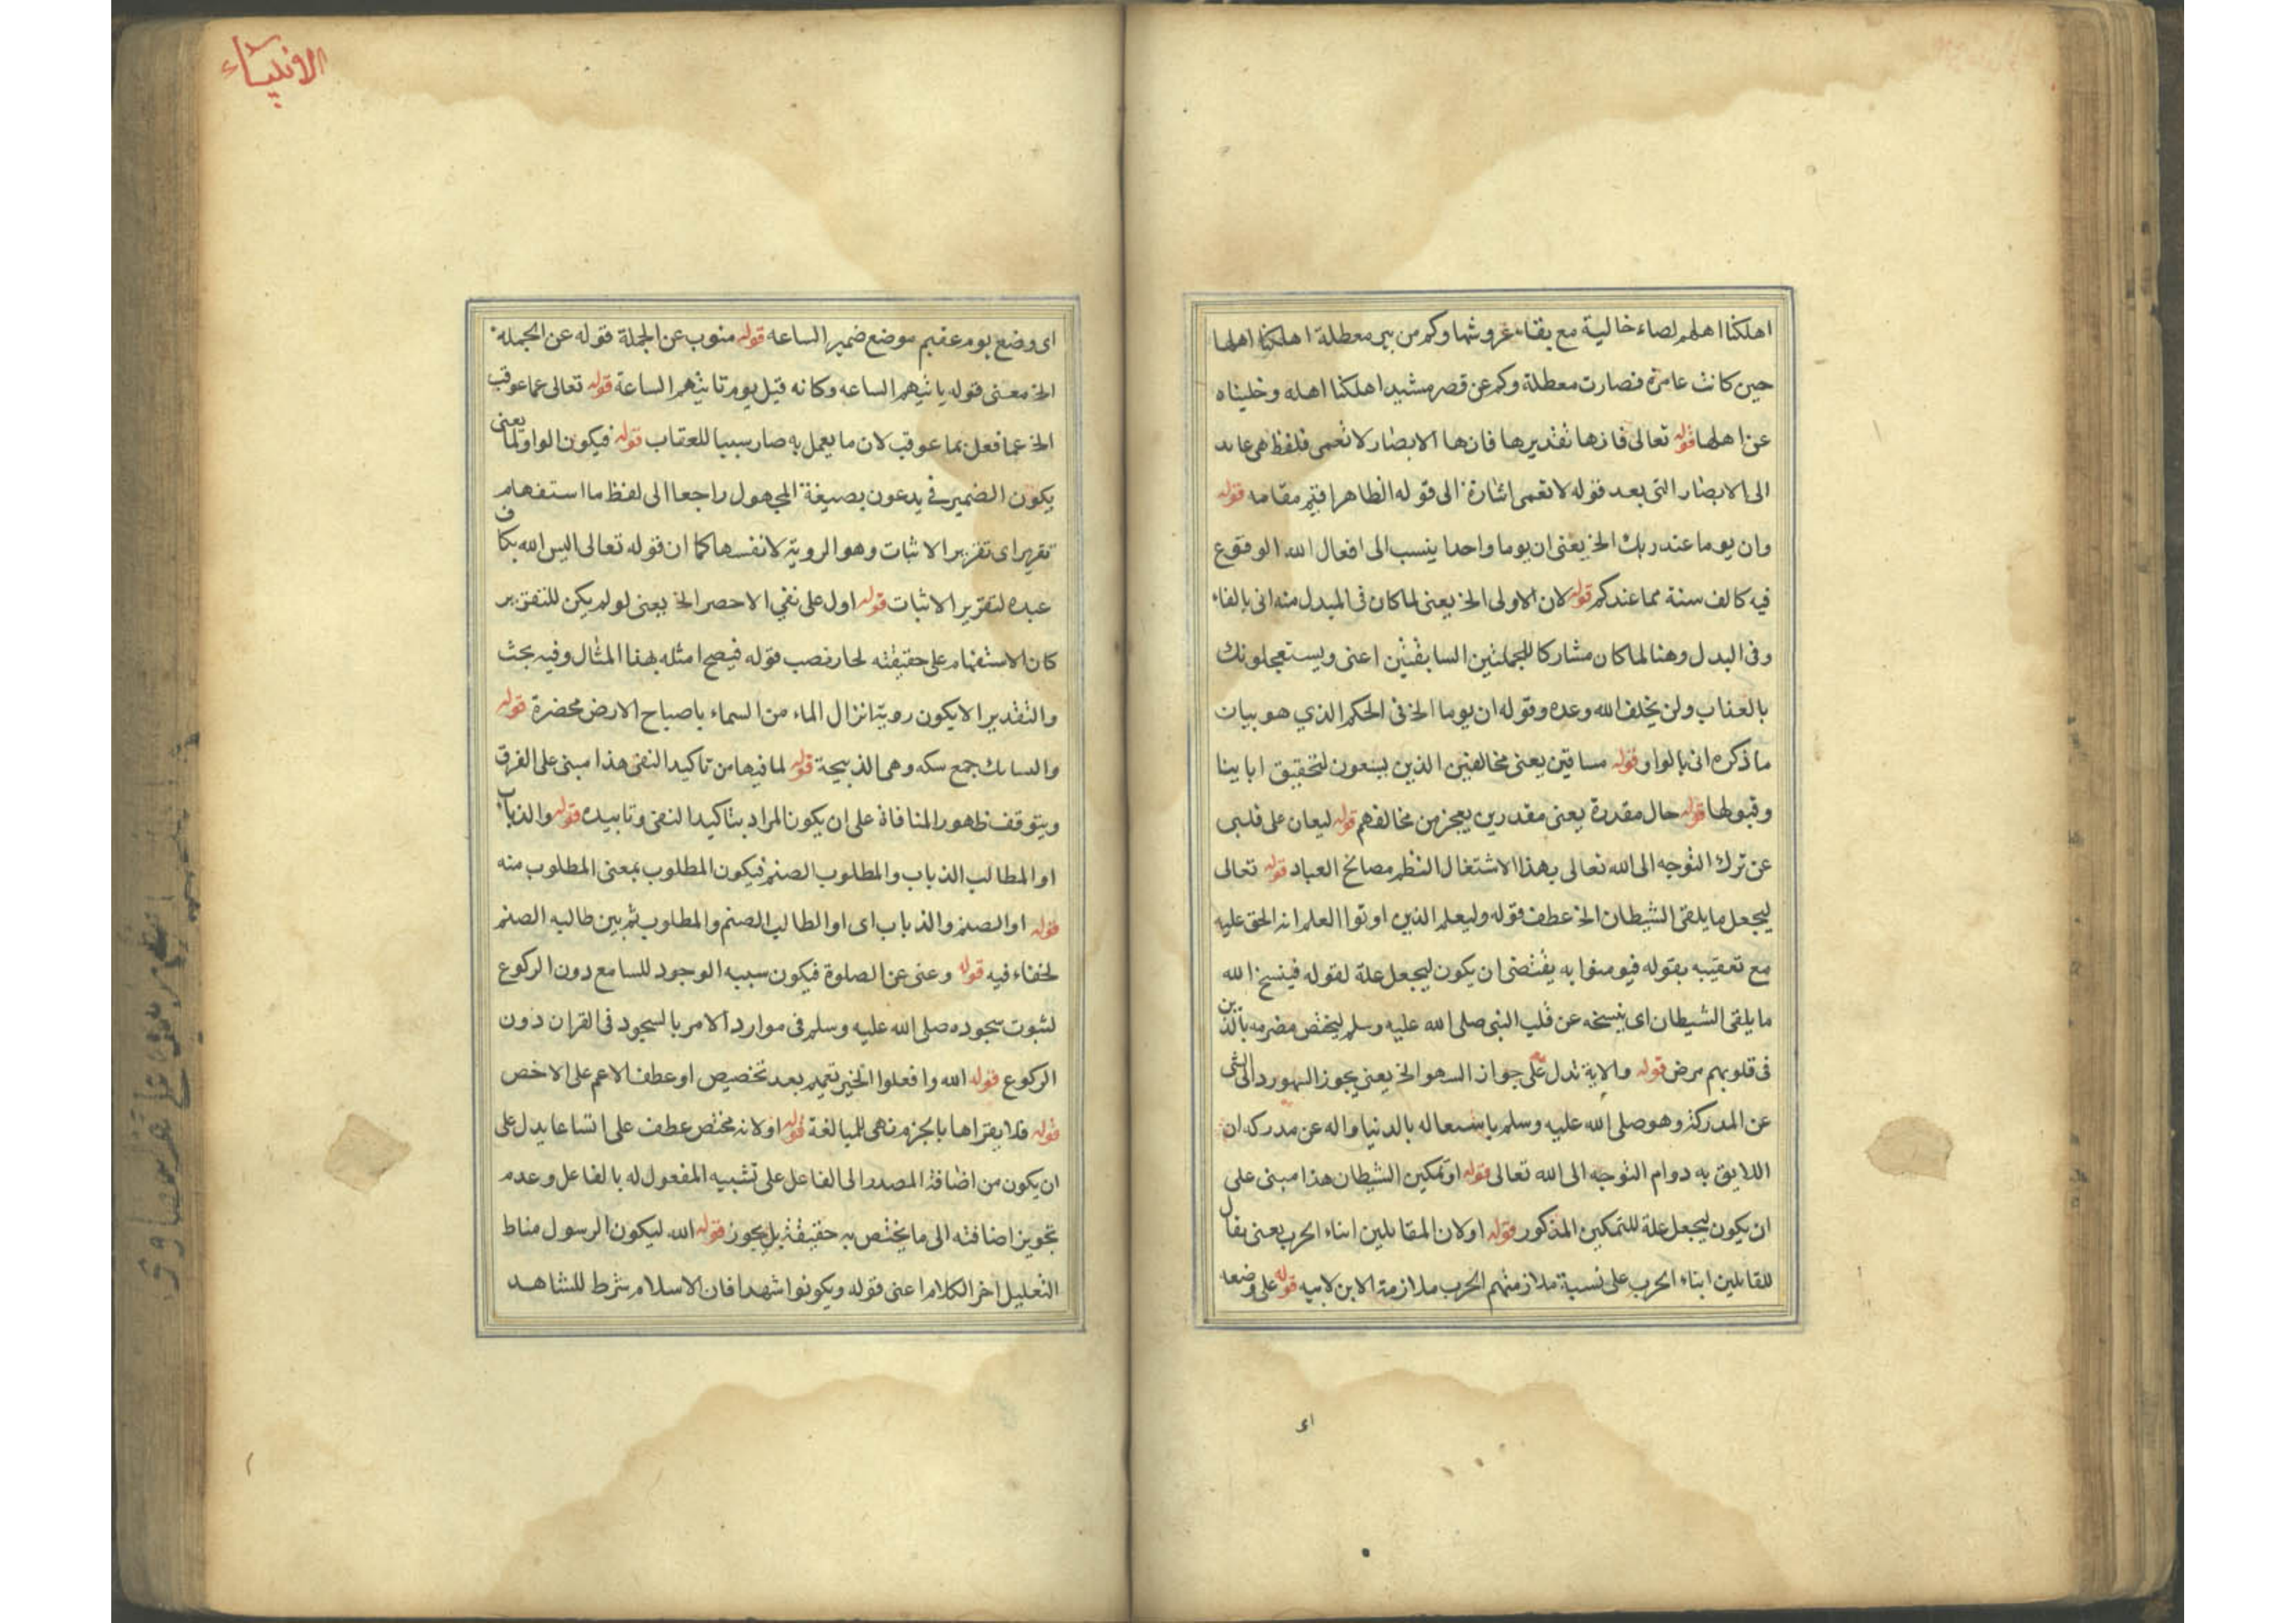 اهلكنا اهلهم لصاء خالية مع بقاء عروشها وكم من بير معطلة اهلكنا اهلها
حين كانت عامرة فصارت معطلة وكم عن قصر مشيد اهلكنا اهله وخليناه
عن اهلها قوله تعالى فانها تقديرها فانها الابصار لا تعمى فلفظ هى عايد
الى الابصار التى بعد قوله لا تعمى اشارة الى قوله الظاهر اقيم مقامه قوله
وان يوما عند ربك الخ يعنى ان يوما واحدا ينسب الى افعال الله الوقوع
فيه كالف سنة مما عندكم قوله لان الاولى الخ يعنى لما كان فى المبدل منه اتى بالفاء
وفى البدل وهنا لما كان مشاركا للجملتين السابقتين اعنى ويستعجلونك
بالعذاب ولن يخلف الله وعده وقوله ان يوما الخ فى الحكم الذي هو بيان
ما ذكره اتى بالواو قوله مساقين يعنى مخالفين الذين يسعون لتحقيق اياتنا
وقبولها قوله حال مقدرة يعنى مقدرين بعجز من مخالفهم قوله ليعان على قلبى
عن ترك التوجه الى الله تعالى بهذا الاشتغال النظم مصالح العباد قوله تعالى
ليجعل ما يلقى الشيطان الخ عطف قوله وليعلم الذين اوتوا العلم انه الحق عليه
مع تعقيبه بقوله فيومنوا به يقتضى ان يكون ليجعل علة لقوله فينسخ الله
ما يلقى الشيطان اى ينسخه عن قلب النبى صلى الله عليه وسلم ليختص مضرمه بالذين
فى قلوبهم مرض قوله والاية تدل على جواز السهو الخ يعنى يجوز السهو رد الى الشى
عن المدركة وهو صلى الله عليه وسلم باشتعاله بالدنيا واله عن مدركه ان
اللايق به دوام التوجه الى الله تعالى قوله او تمكين الشيطان هذا مبنى على
ان يكون ليجعل علة للتمكين المذكور قوله او لان المقابلين ابناء الحرب يعنى يقال
للقابلين ابناء الحرب على نسبة ملازمتهم الحرب ملازمة الابن لابيه قوله على وضعه
اى
الانبياء
اى وضع يوم عقيم موضع ضمير الساعه قوله منوب عن الجملة قوله عن الجمله
الخ معنى قوله ياتيهم الساعه وكانه قيل يوم تاتيهم الساعة قوله تعالى عما عوقب
الخ عما فعل بما عوقب لان ما يعمل به صار سببا للعقاب قوله فيكون الواو لما يعنى
يكون الضمير فى يدعون بصيغة المجهول راجعا الى لفظ ما استفهام
تقرير اى تقرير الاثبات وهو الروية لا نفسها كما ان قوله تعالى اليس الله بكاف
عبده لتقرير الاثبات قوله اول على نفي الاحصر الخ يعنى لو لم يكن للتقرير
كان الاستفهام على حقيقته لجار نصب قوله فيصح امثله بهذا المثال وفيه بحث
والتقدير الا يكون روية انزال الماء من السماء باصباح الارض مخضرة قوله
والسابك جمع سكه وهى الذبيحة قوله لما فيها من تاكيد النفى هذا مبنى على الفرق
ويتوقف ظهور المنافاة على ان يكون المراد بتاكيد النفى وتابيده قوله والذباب
او المطالب الذباب والمطلوب الصنم فيكون المطلوب بمعنى المطلوب منه
قوله او الصنم والذباب اى او الطالب الصنم والمطلوب ثم بين طالبه الصنم
لخفاء فيه قوله وعنى عن الصلوة فيكون سببه الوجود للسامع دون الركوع
لثبوت سجوده صلى الله عليه وسلم فى موارد الامر بالسجود فى القران دون
الركوع قوله الله وافعلوا الخير تعميم بعد تخصيص او عطف الاعم على الاخص
قوله فلا يقراها بالجزم نهى للمبالغة قوله او لانه مختص عطف على اتساعا يدل على
ان يكون من اضافة المصدر الى الفاعل على تشبيه المفعول له بالفاعل وعدم
تجويز اضافته الى ما يختص به حقيقة بل يجوز قوله الله ليكون الرسول مناط
التعليل اخر الكلام اعنى قوله ويكونوا شهدا فان الاسلام شرط للشاهد